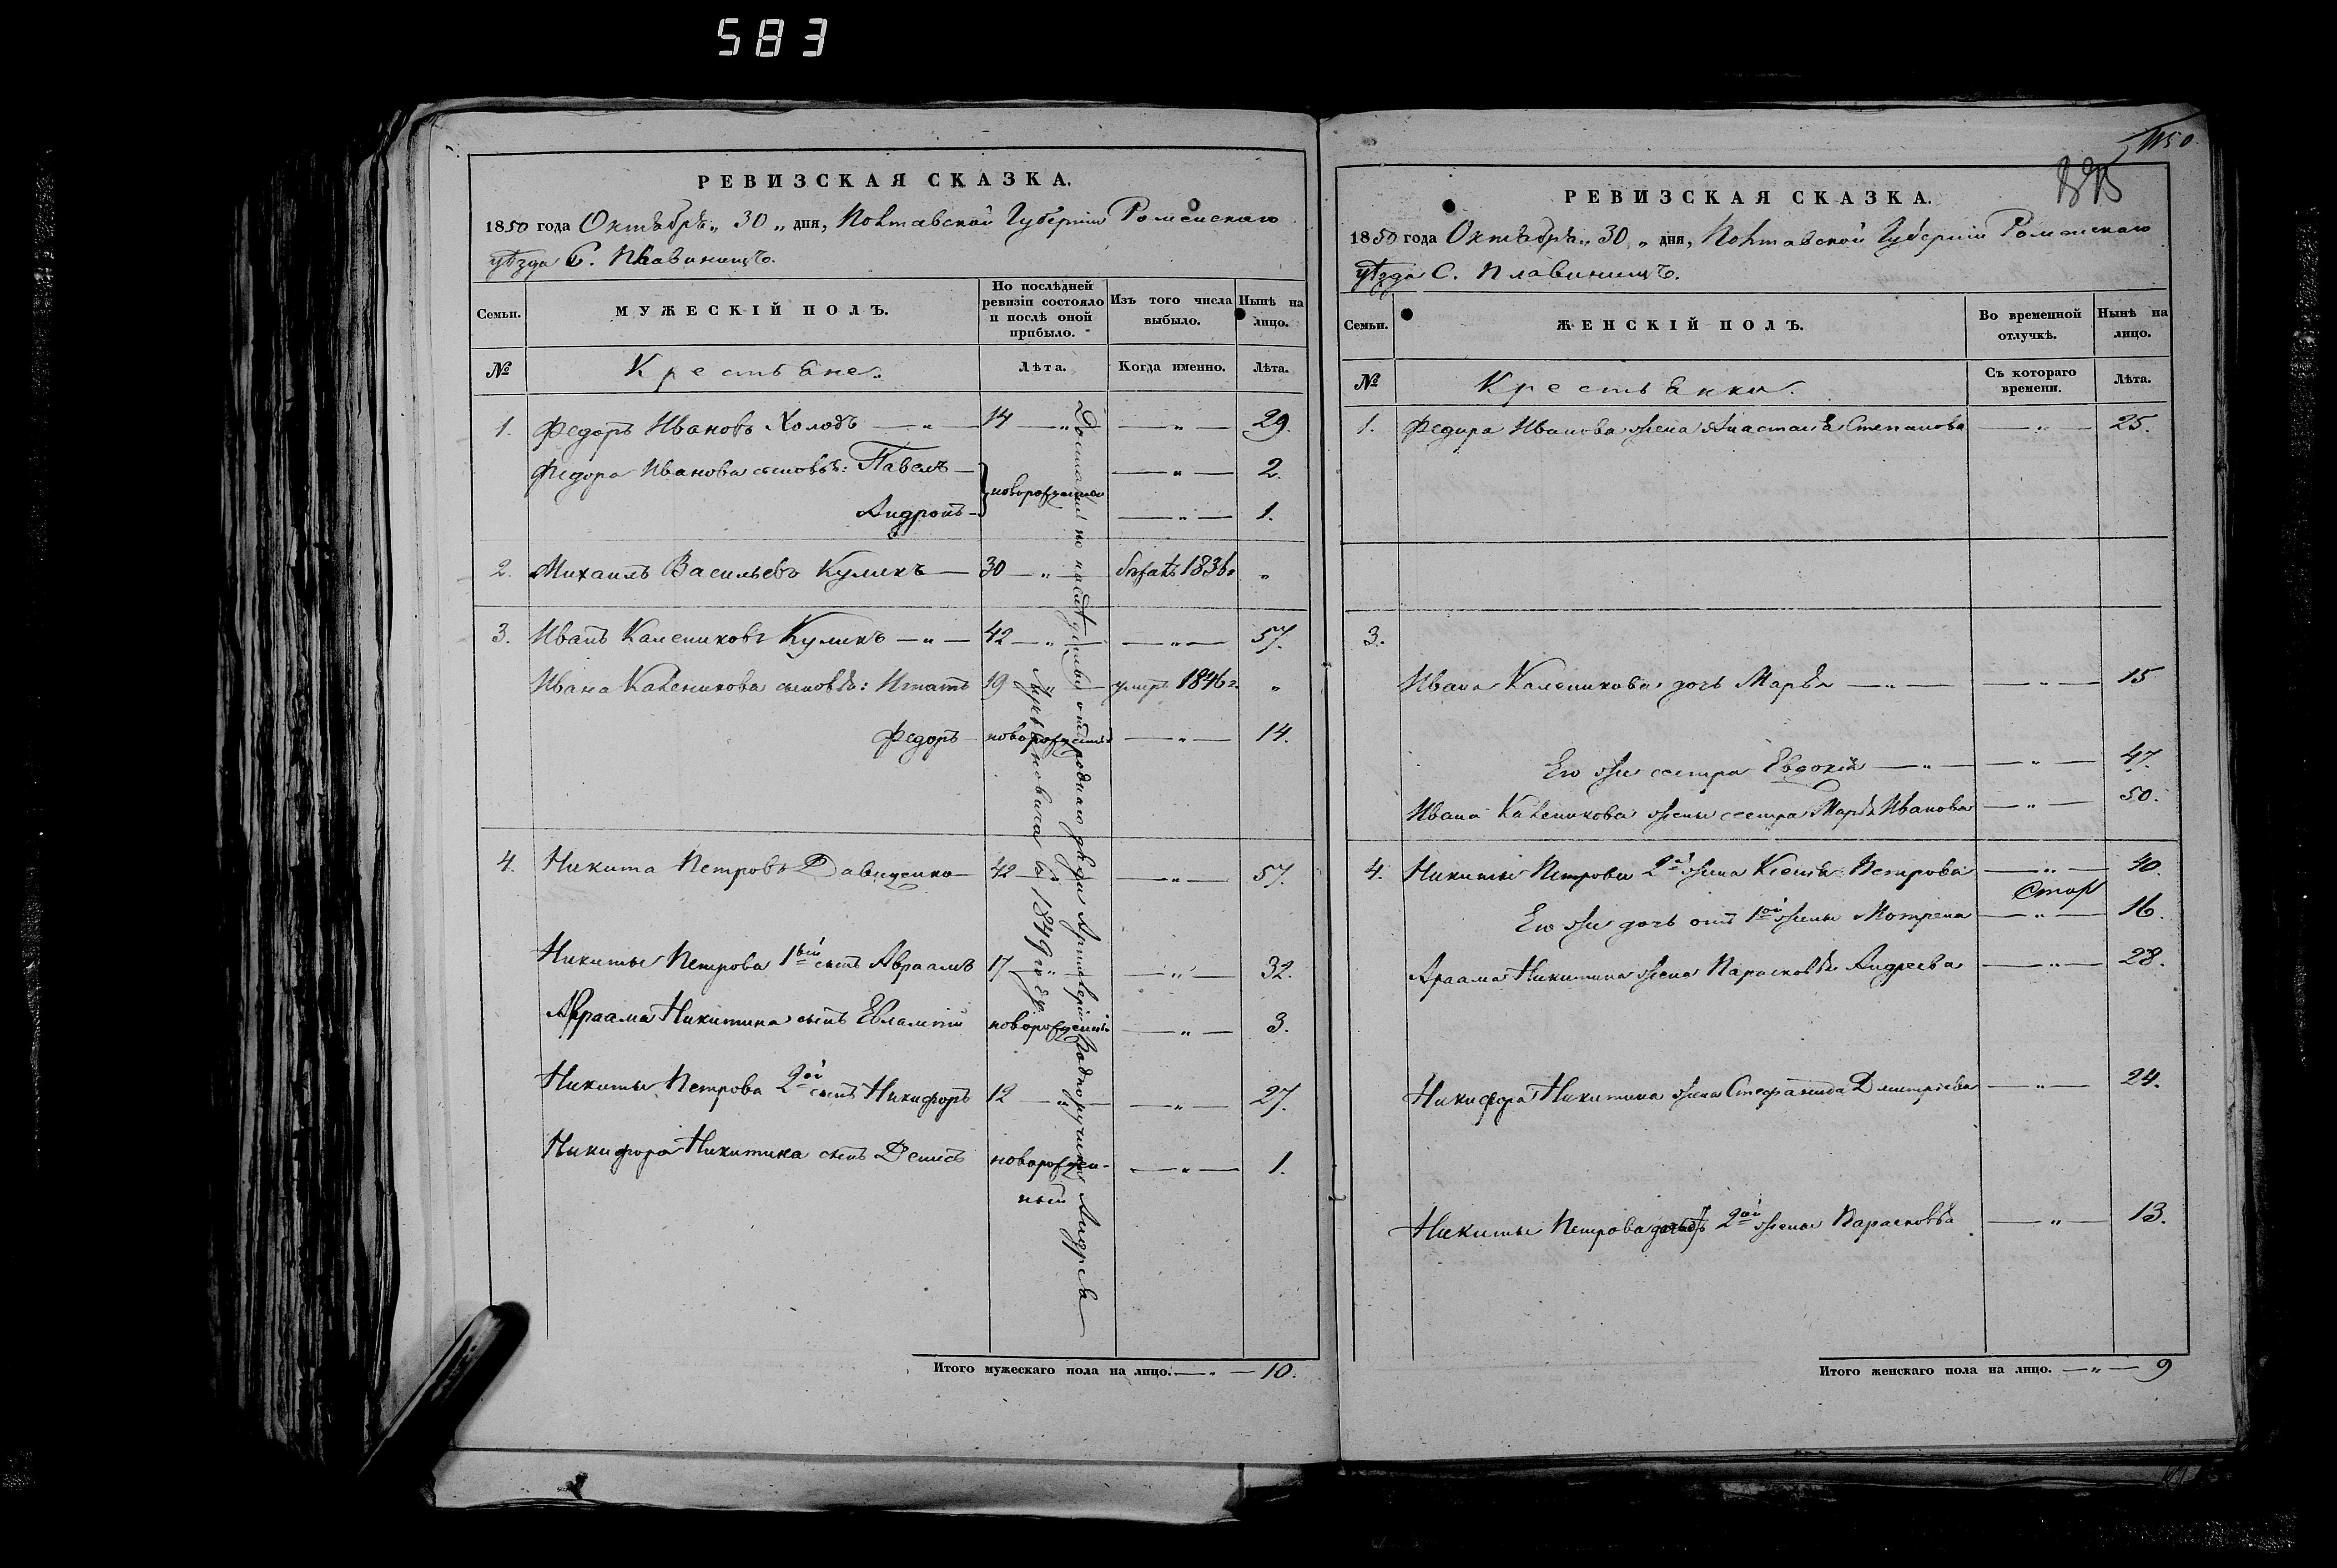 583
РЕВИЗСКАЯ СКАЗКА.
1850 года Октября „ 30 „ дня, Полтавской Губерніи Роменскаго
уѣзда С. Плавинищъ.
Семьи.
МУЖЕСКІЙ ПОЛЪ.
По послѣдней ревизіи состояло и послѣ оной прибыло.
Изъ того числа выбыло.
Нынѣ на лицо.
№
Крестьяне.
Лѣта.
Когда именно.
Лѣта.
1. Федоръ Ивановъ Холодъ — „ — 14 — „ — — „ — 29.
Федора Иванова сыновья: Павелъ — новорожденные — „ — 2.
Андронъ — — „ — 1.
2. Михаилъ Васильевъ Куликъ — 30 — „ — бѣжалъ 1836 „
3. Иванъ Калениковъ Куликъ — „ — 42 — „ — — „ — 57.
Ивана Каленикова сыновья: Игнатъ 19 — „ — умеръ 1846 г. „
Федоръ новорожденный — „ — 14.
4. Никита Петровъ Давиденко — 42 — „ — — „ — 57.
Никиты Петрова 1ый сынъ Авраамъ 17 — „ — — „ — 32.
Авраама Никитина сынъ Евлампій новорожденный — „ — 3.
Никиты Петрова 2ой сынъ Никифоръ 12 — „ — — „ — 27.
Никифора Никитина сынъ Денисъ новорожден- — „ — 1.
ный
Достались по наслѣдству отъ роднаго дяди Артилеріи Подпоручика Андрея
Лукьяновича въ 1849 году
Итого мужескаго пола на лицо. — „ — 10.
1150
РЕВИЗСКАЯ СКАЗКА.
1850 года Октября „ 30 „ дня, Полтавской Губерніи Роменскаго
уѣзда С. Плавинищъ.
Семьи.
ЖЕНСКІЙ ПОЛЪ.
Во временной отлучкѣ.
Нынѣ на лицо.
№
Крестьянки.
Съ котораго времени.
Лѣта.
1. Федора Иванова жена Анастасія Степанова — „ — 25.
3.
Ивана Каленикова дочь Марья — „ — — „ — 15
Его же сестра Евдокія — „ — — „ — 47.
Ивана Каленикова жены сестра Марья Иванова — „ — 50.
4. Никиты Петрова 2я жена Ксенія Петрова — „ — 40.
Его же дочь отъ 1ой жены Мотрена — „ — 16.
Араама Никитина жена Парасковья Андреева — „ — 28.
Никифора Никитина жена Стефанида Дмитріева — „ — 24.
Никиты Петрова дочь отъ 2ой жены Парасковья — „ — 13.
Итого женскаго пола на лицо. — „ — 9